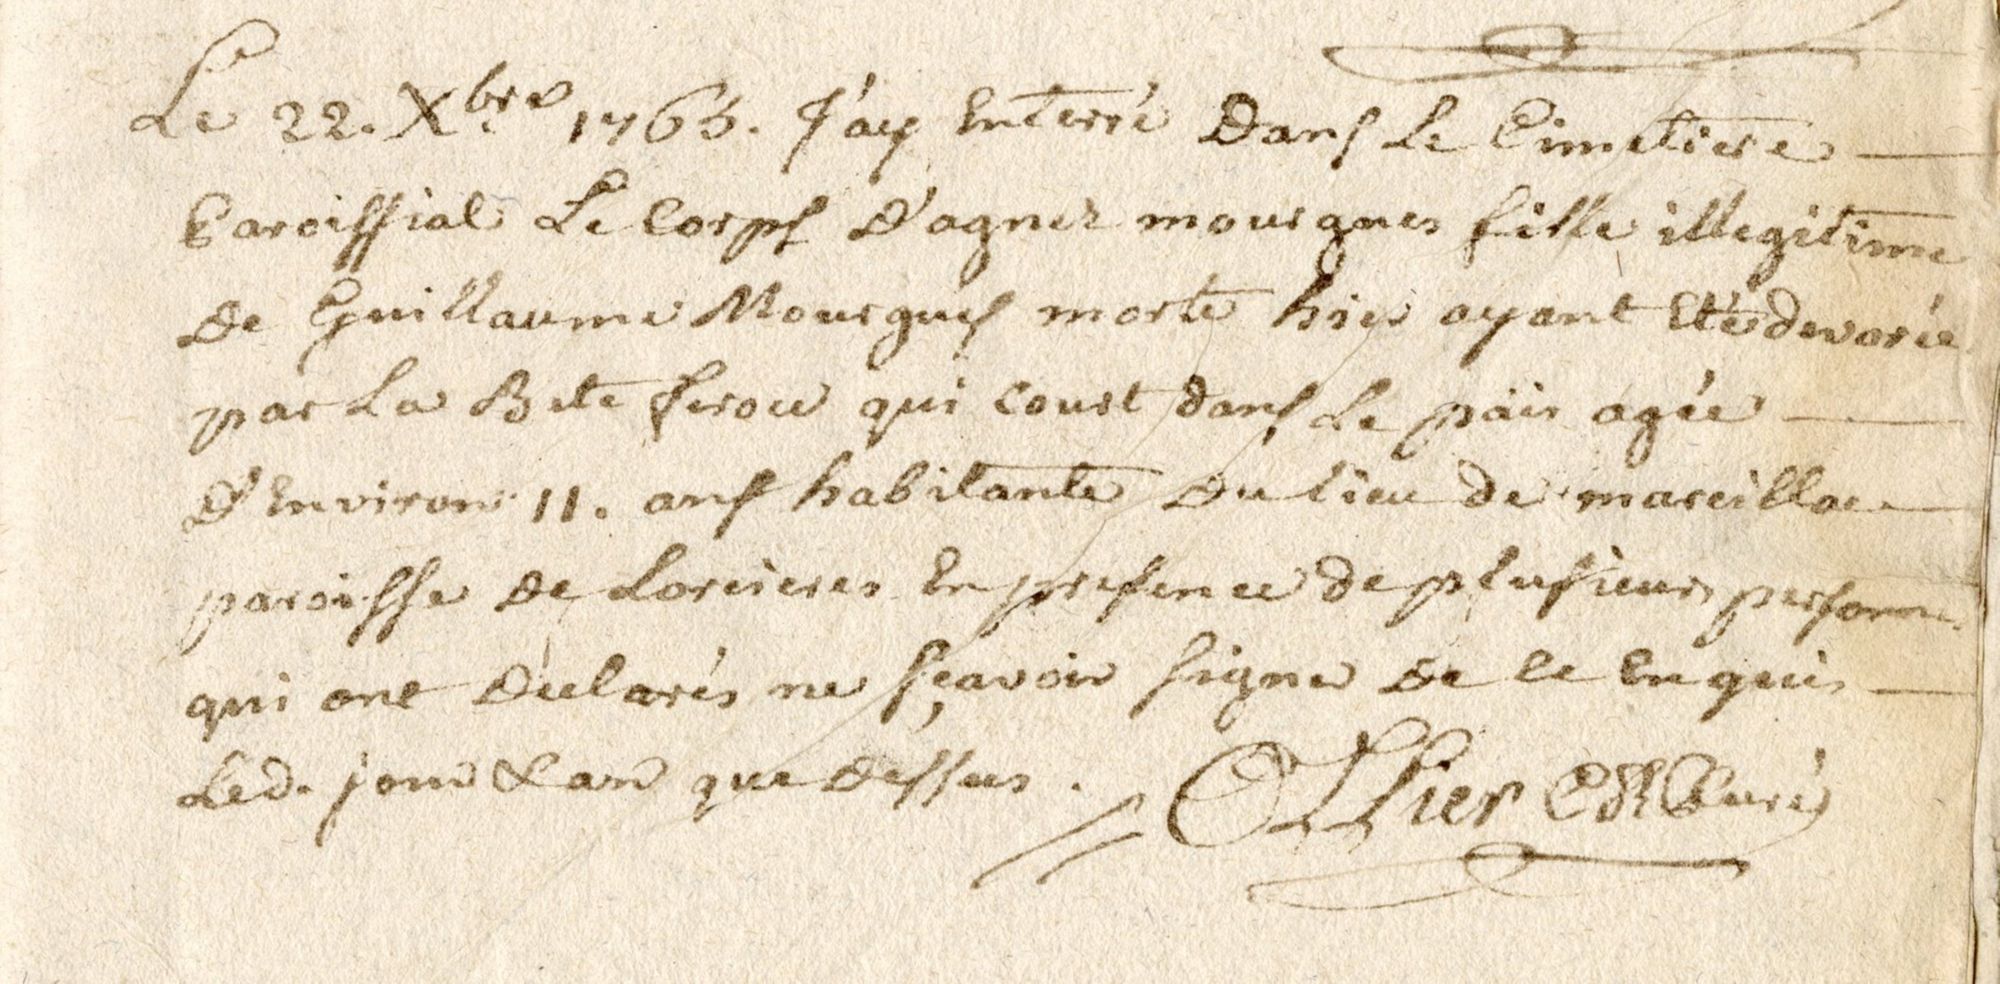 Le 22. Xbre 1765. J'ay Enterré Dans Le Cimetiere
Paroissial Le Corps D'agnez mourgues fille illegitime
De Guillaume Mourgues morte hier ayant Eté devorée
par La Bete feroce qui court dans Le païs agée
D'Environ 11. ans habitante Du lieu de marcillac
paroisse De Lorcieres En presence de plusieurs personnes
qui ont Déclarés ne sçavoir signer De ce Enquis
Led. jour & an que Dessus. Ollier Curé